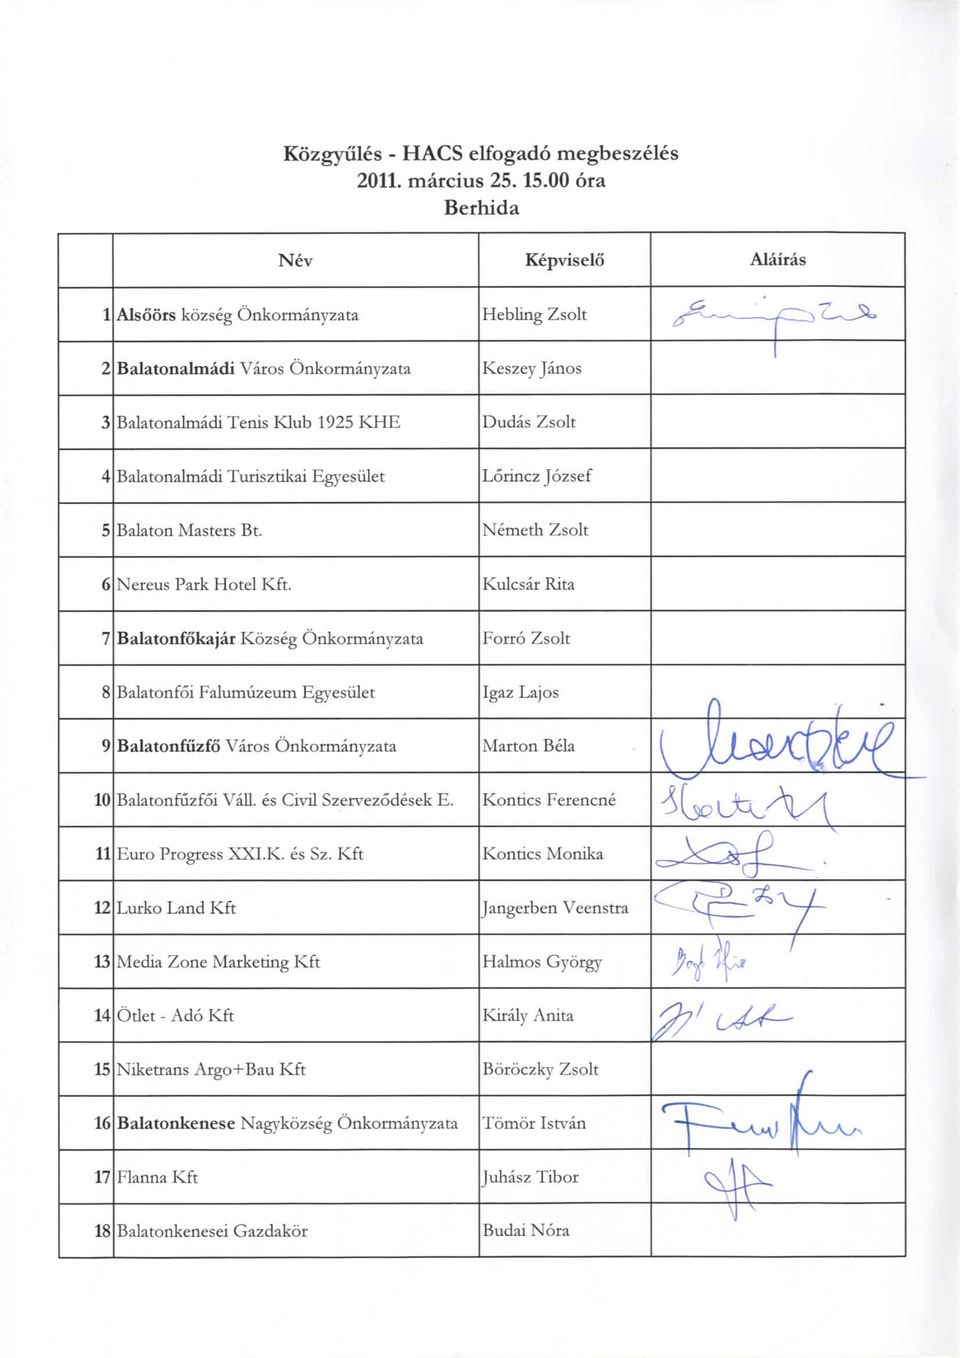 Közgyűlés - HACS elfogadó megbeszélés
2011. március 25. 15.00 óra
Berhida
Név Képviselő Aláírás
1 Alsóörs község Önkormányzata Hebling Zsolt
2 Balatonalmádi Város Önkormányzata Keszey János
3 Balatonalmádi Tenis Klub 1925 KHE Dudás Zsolt
4 Balatonalmádi Turisztikai Egyesület Lőrincz József
5 Balaton Masters Bt. Németh Zsolt
6 Nereus Park Hotel Kft. Kulcsár Rita
7 Balatonfőkajár Község Önkormányzata Forró Zsolt
8 Balatonfői Falumúzeum Egyesület Igaz Lajos
9 Balatonfűzfő Város Önkormányzata Marton Béla
10 Balatonfűzfői Váll. és Civil Szerveződések E. Kontics Ferencné
11 Euro Progress XXI.K. és Sz. Kft Kontics Monika
12 Lurko Land Kft Jangerben Veenstra
13 Media Zone Marketing Kft Halmos György
14 Ötlet - Adó Kft Király Anita
15 Niketrans Argo+Bau Kft Böröczky Zsolt
16 Balatonkenese Nagyközség Önkormányzata Tömör István
17 Flanna Kft Juhász Tibor
18 Balatonkenesei Gazdakör Budai Nóra